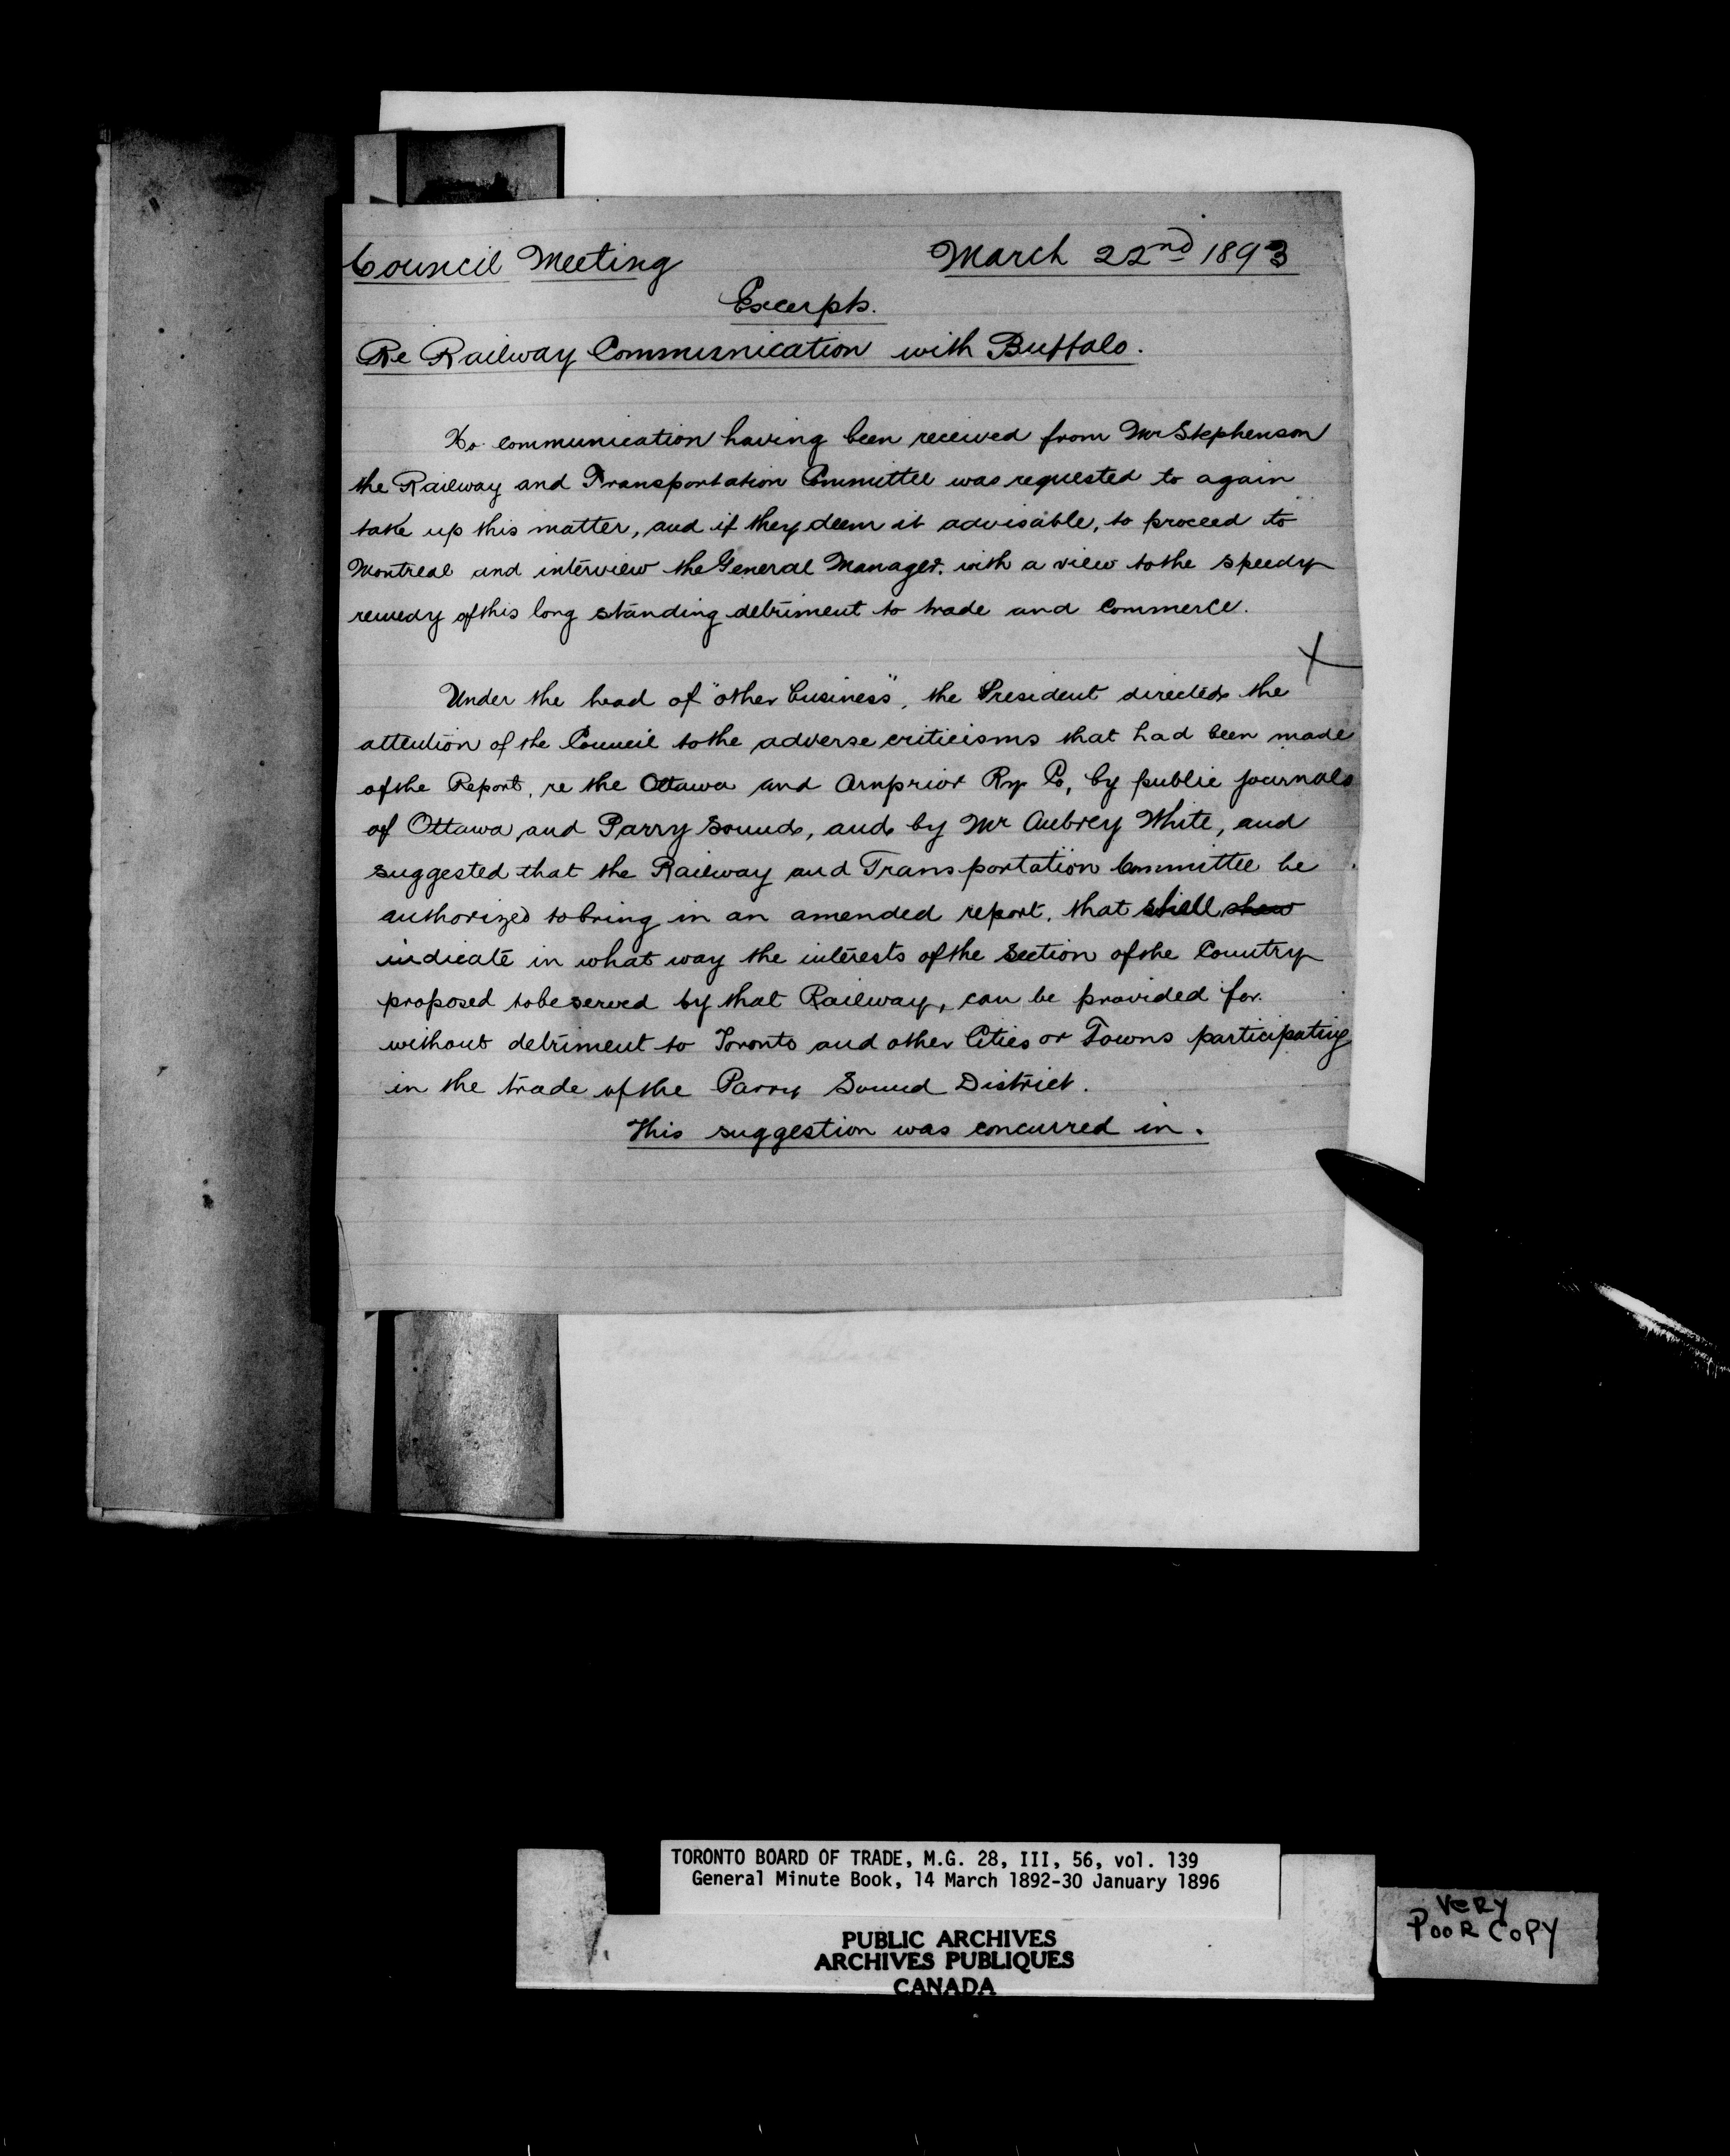 Council Meeting March 22nd 1893
Excerpts.
Re Railway Communication with Buffalo.
No communication having been received from Mr Stephenson
the Railway and Transportation Committee was requested to again
take up this matter, and if they deem it advisable, to proceed to
Montreal and interview the General Manager. with a view to the speedy
remedy of this long standing detriment to trade and commerce.
X
Under the head of "other business", the President directed the
attention of the Council to the adverse criticisms that had been made
of the Report, re the Ottawa and Arnprior Ry Co, by public journals
of Ottawa and Parry Sound, and by Mr Aubrey White, and
suggested that the Railway and Transportation Committee be
authorized to bring in an amended report, that shall show
indicate in what way the interests of the section of the Country
proposed to be served by that Railway, can be provided for.
without detriment to Toronto and other Cities or Towns participating
in the trade of the Parry Sound District.
This suggestion was concurred in.
TORONTO BOARD OF TRADE, M.G. 28, III, 56, vol. 139
General Minute Book, 14 March 1892-30 January 1896
PUBLIC ARCHIVES
ARCHIVES PUBLIQUES
CANADA
VERY
POOR COPY